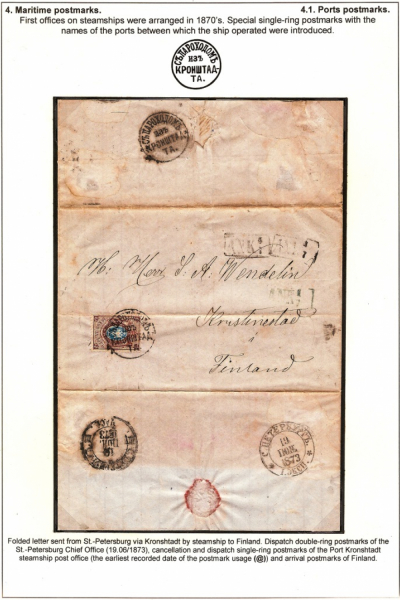 4. Maritime postmarks. 4.1. Ports postmarks.
First offices on steamships were arranged in 1870's. Special single-ring postmarks with the
names of the ports between which the ship operated were introduced.
СЪ ПАРОХОДОМЪ
ИЗЪ
КРОНШТАД-
ТА.
СЪ ПАРОХОДОМЪ
ИЗЪ
КРОНШТА
ТА.
H. Herr S. A. Wendelin
Kristinestad
i
Finland
19
ІЮН.
1873
С. ПЕТЕРБУРГЪ
19
ІЮН.
1873
Folded letter sent from St.-Petersburg via Kronshtadt by steamship to Finland. Dispatch double-ring postmarks of the
St.-Petersburg Chief Office (19.06/1873), cancellation and dispatch single-ring postmarks of the Port Kronshtadt
steamship post office (the earliest recorded date of the postmark usage (@)) and arrival postmarks of Finland.